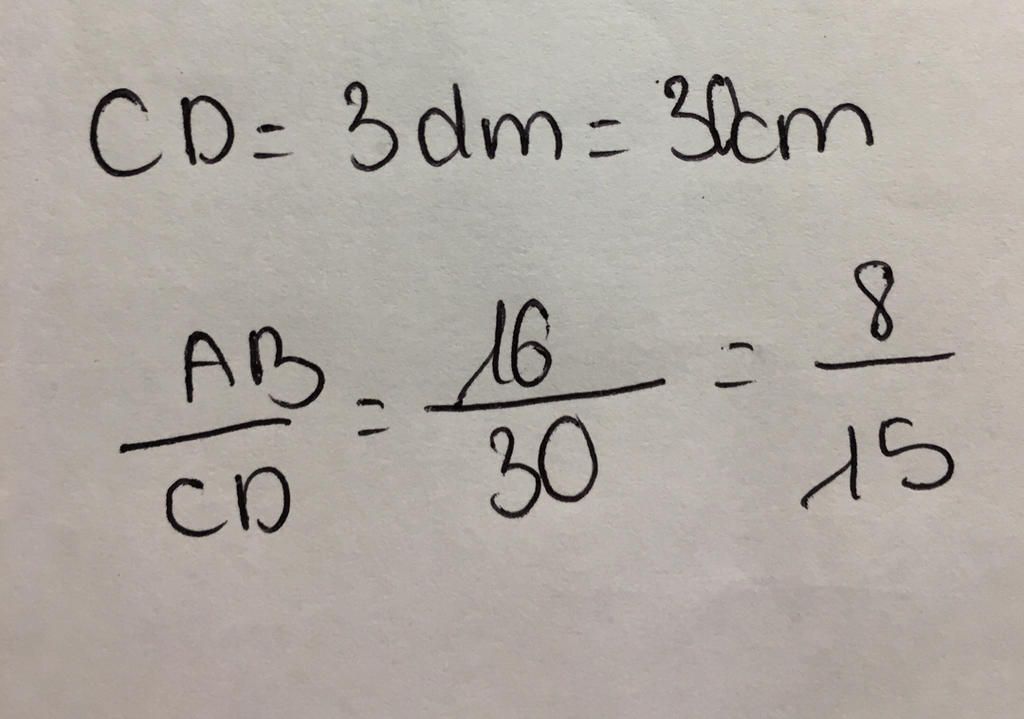 CD = 3 dm = 30cm
AB/CD = 16/30 = 8/15